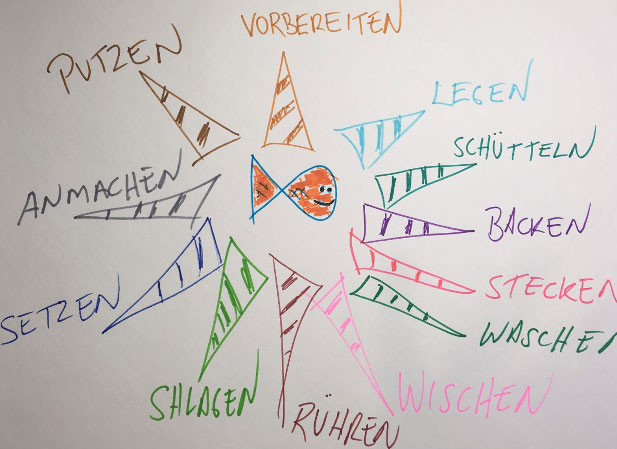 VORBEREITEN
PUTZEN
LEGEN
SCHÜTTELN
ANMACHEN
BACKEN
STECKEN
SETZEN
WASCHEN
WISCHEN
SHLAGEN
RÜHREN